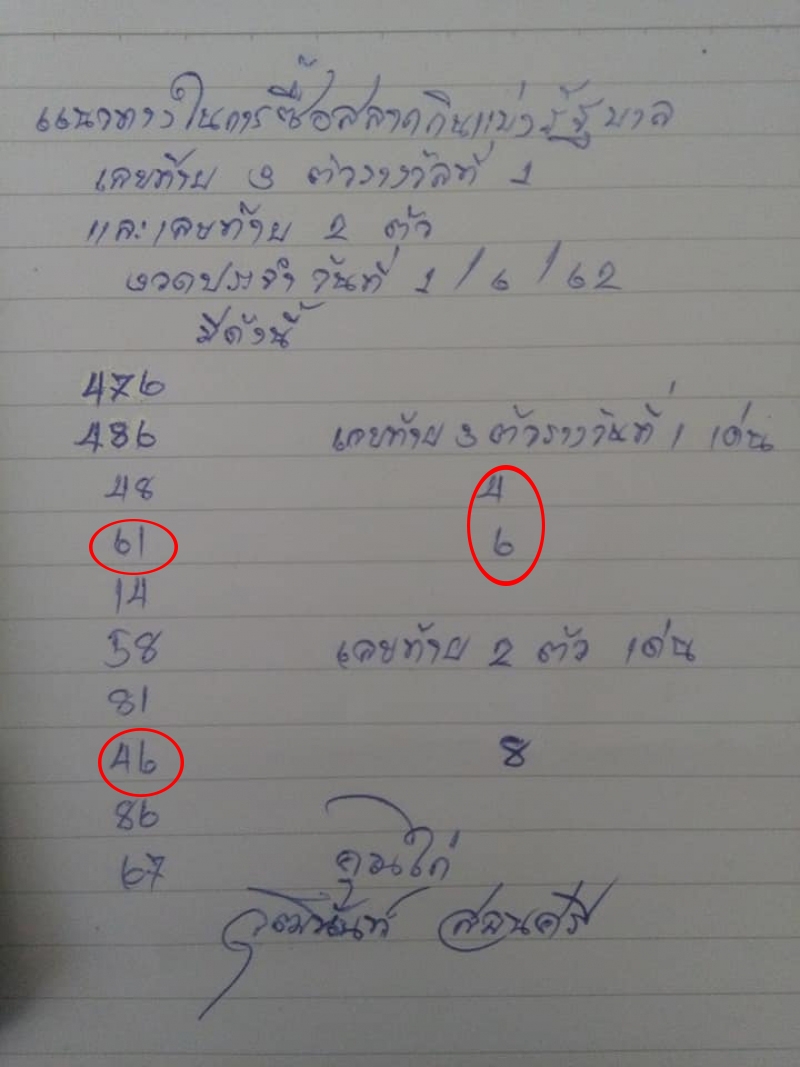 แนวทางในการซื้อสลากกินแบ่งรัฐบาล
เลขท้าย 3 ตัวรางวัลที่ 1
และเลขท้าย 2 ตัว
งวดประจำวันที่ 1/6/62
มีดังนี้
476
486
เลขท้าย 3 ตัวรางวันที่ 1 เด่น
48
4
61
6
14
58
เลขท้าย 2 ตัว เด่น
81
46
8
86
67